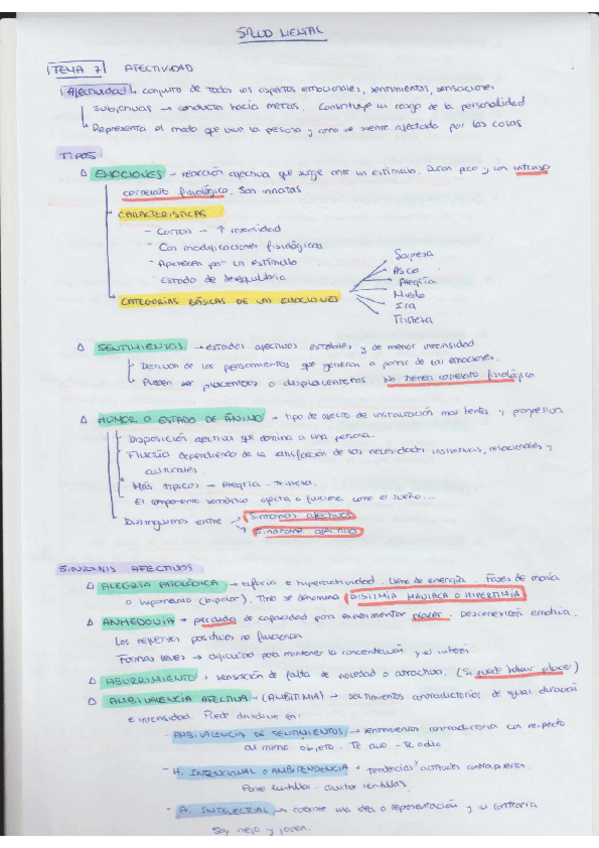 SALUD MENTAL
TEMA 7 AFECTIVIDAD
Afectividad → conjunto de todos los aspectos emocionales, sentimientos, sensaciones
subjetivas → conducta hacia metas. Constituye un rasgo de la personalidad
Representa el modo que vive la persona y como se siente afectada por las cosas
TIPOS
EMOCIONES → reacción afectiva que surge ante un estímulo. Duran poco y con intenso
correlato fisiológico. Son innatas
CARACTERÍSTICAS
- Cortas → ↑ intensidad
- Con modificaciones fisiológicas
- Aparecen por un estímulo
Estado de desequilibrio
CATEGORÍAS BÁSICAS DE LAS EMOCIONES
Sorpresa
Asco
Alegría
Miedo
Ira
Tristeza
SENTIMIENTOS → estados afectivos estables y de menor intensidad
Derivan de los pensamientos que generan a partir de las emociones.
Pueden ser placenteros o displacenteros. No tienen correlato fisiológico
HUMOR O ESTADO DE ÁNIMO → tipo de afecto de instauración mas lenta y progresiva
Disposición afectiva que domina a una persona.
Fluctúa dependiendo de la satisfacción de las necesidades instintivas, relacionales y
culturales
Más típicos → Alegría - tristeza.
El componente somático afecta a funciones como el sueño...
Distinguimos entre → Síntomas afectivos
Síndrome afectivo
SÍNTOMAS AFECTIVOS
ALEGRÍA PATOLÓGICA → euforia e hiperactividad. Llena de energía. Fases de manía
o hipomanía (bipolar). Tmb se denomina DISTIMIA MANÍACA O HIPERTIMIA
ANHEDONIA → perdida de capacidad para experimentar placer. Desconexión emotiva.
Los refuerzos positivos no funcionan
Formas leves → dificultad para mantener la concentración y el interés
ABURRIMIENTO → sensación de falta de novedad o atractivo. (Si puede haber placer)
AMBIVALENCIA AFECTIVA → (AMBITIMIA) → sentimientos contradictorios de igual duración
e intensidad. Puede dividirse en:
- AMBIVALENCIA DE SENTIMIENTOS → sentimientos contradictorios con respecto
al mismo objeto. Te amo - Te odio
- A. INTENCIONAL O AMBITENDENCIA → tendencias/actitudes contrapuestas.
- A. INTELECTUAL → coexiste una idea o representación y su contraria
Soy viejo y joven.